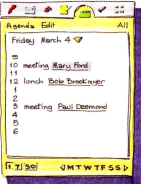 Agenda Edit All
Friday March 4
9
10 meeting Mary Ford
11
12 lunch Bob Brookmyer
1
2
3 meeting Paul Desmond
4
5
6
1, 7, 30 JMTWTFSS